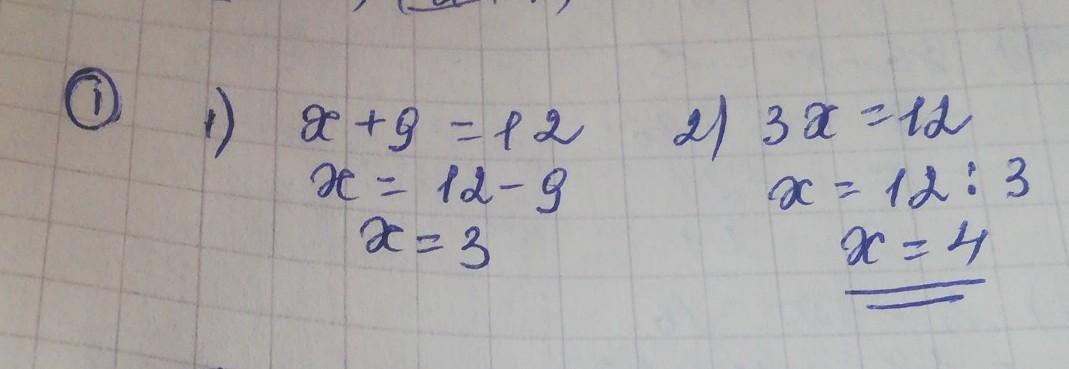 ①
1) x + 9 = 12
x = 12 - 9
x = 3
2) 3x = 12
x = 12 : 3
x = 4